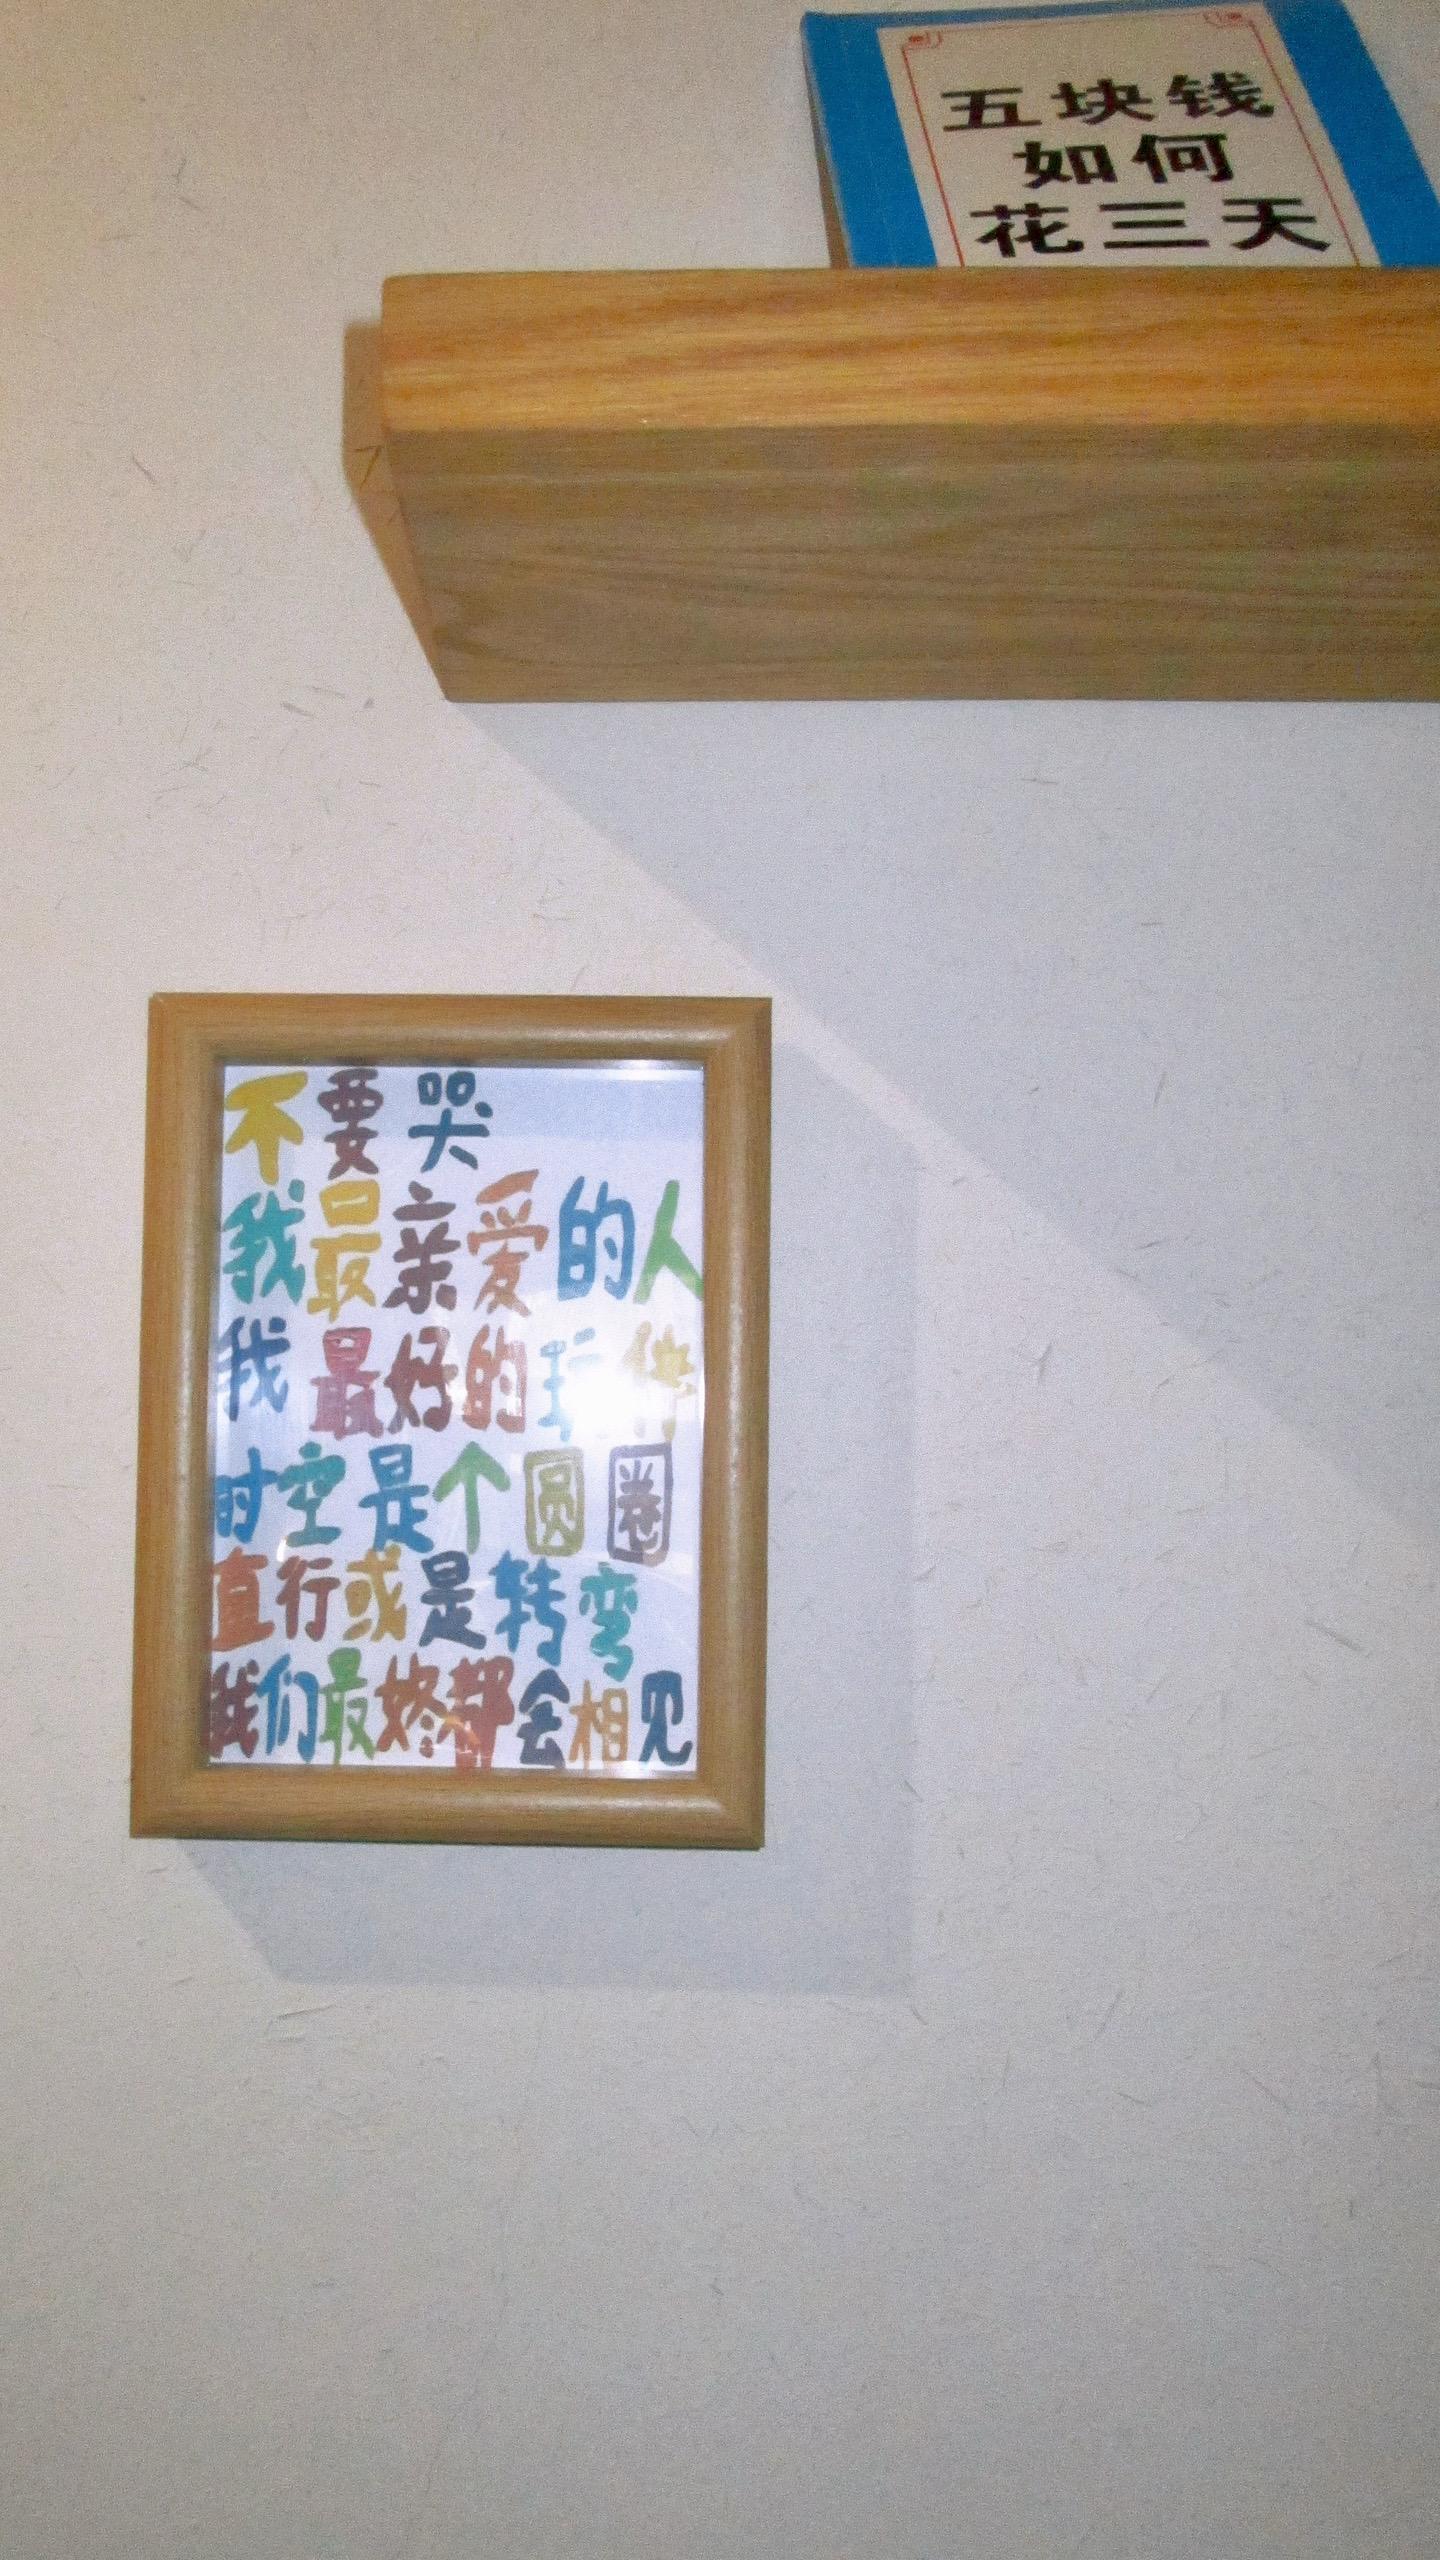 五块钱
如何
花三天
不要哭
我最亲爱的人
我最好的玩伴
时空是个圆圈
直行或是转弯
我们最终都会相见